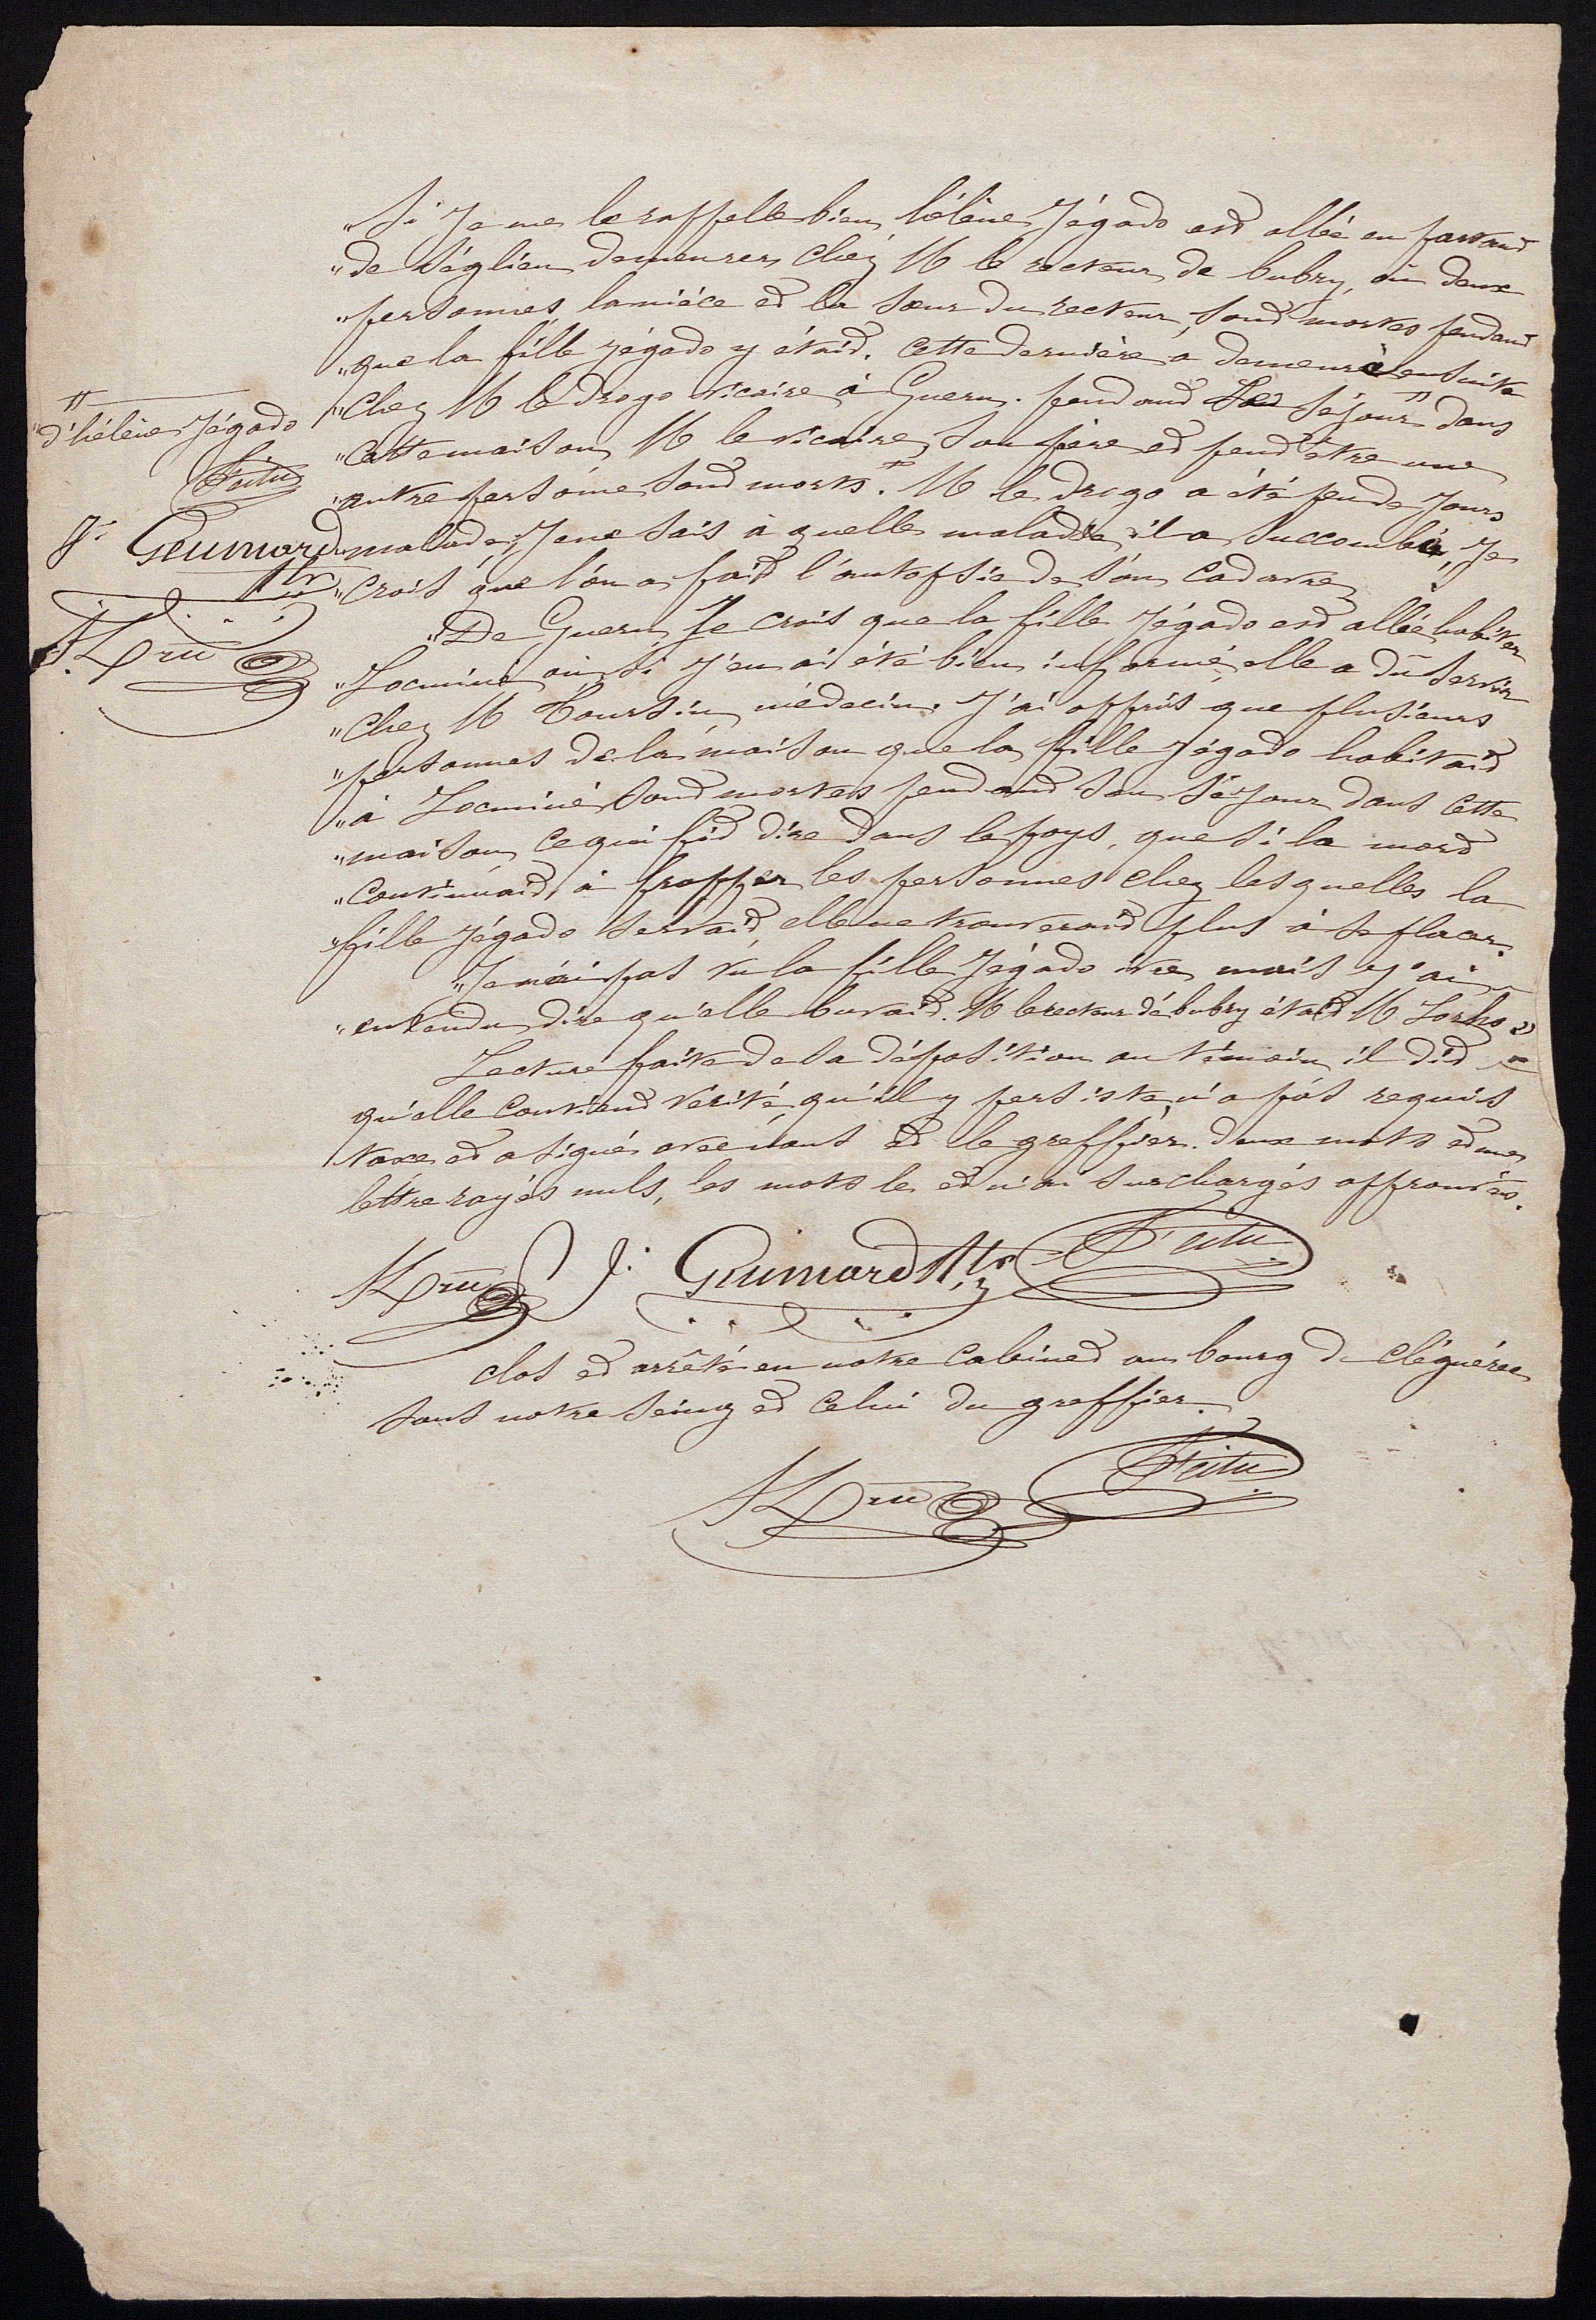 "Si Je me le rappelle bien, hélène Jégado est allée en partant
"de Séglien demeurer chez M le recteur de bubry, où deux
"personnes, la nièce et la sœur du recteur, sont mortes pendant
"que la fille Jégado y était. Cette dernière a demeuré ensuite
"chez M le drogo vicaire à Guern. pendant le séjour dans
"d'hélène Jégado
"cette maison M le vicaire, son père et peut être une
"autre persone sont morts. M le drogo a été peu de Jours
"malade, Je ne sais à quelle maladie il a succombé, Je
"crois que l'on a fait l'autopsie de son cadavre
Feitu
J. Guimard
"De Guern, Je crois que la fille Jégado est allée habiter
"Locminé où si J'en ai été bien informé, elle a dû servir
"chez M Toursin, médecin. J'ai appris que plusieurs
"personnes de la maison que la fille Jégado habitait
"à Locminé sont mortes pendant son séjour dans cette
"maison, ce qui fit dire dans le pays, que si la mort
"continuait, à frapper les personnes chez lesquelles la
"fille Jégado servait, elle ne trouverait plus à se placer.
"Je n'ai pas vu la fille Jégado ivre, mais J'ai
"entendu dire qu'elle buvait. M le recteur de bubry était M Lorho"
Lecture faite de sa déposition au témoin, il dit
qu'elle contient vérité, qu'il y persiste, n'a pas requis
taxe et a signé avec nous et le greffier. deux mots et une
lettre rayés nuls, les mots le et n'ai surchargés approuvés.
J. Guimard Feitu
clos et arrêté en notre cabinet au bourg de cléguérec
sous notre seing et celui du greffier.
Feitu